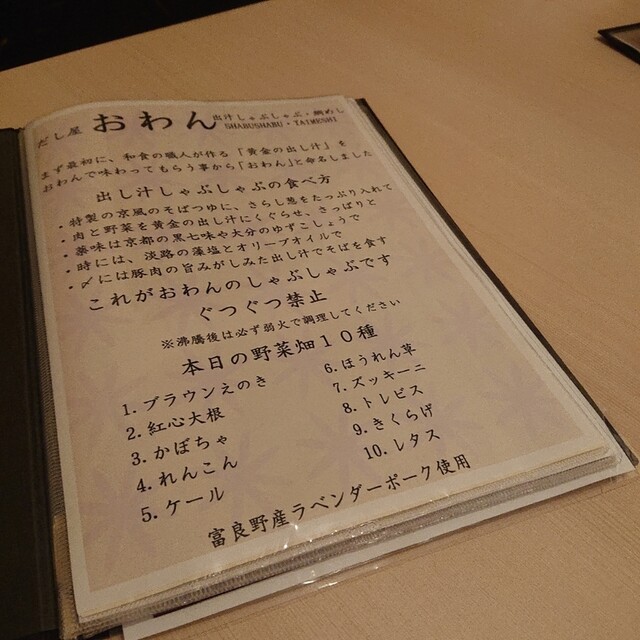 だし屋 おわん 出汁しゃぶしゃぶ・鯛めし
SHABUSHABU・TAIMESHI
まず最初に、和食の職人が作る「黄金の出し汁」を
おわんで味わってもらう事から「おわん」と命名しました
出し汁しゃぶしゃぶの食べ方
・特製の京風のそばつゆに、さらし葱をたっぷり入れて
・肉と野菜を黄金の出し汁にくぐらせ、さっぱりと
・薬味は京都の黒七味や大分のゆずこしょうで
・時には、淡路の藻塩とオリーブオイルで
・〆には豚肉の旨みがしみた出し汁でそばを食す
これがおわんのしゃぶしゃぶです
ぐつぐつ禁止
※沸騰後は必ず弱火で調理してください
本日の野菜畑10種
1. ブラウンえのき
2. 紅心大根
3. かぼちゃ
4. れんこん
5. ケール
6. ほうれん草
7. ズッキーニ
8. トレビス
9. きくらげ
10. レタス
富良野産ラベンダーポーク使用